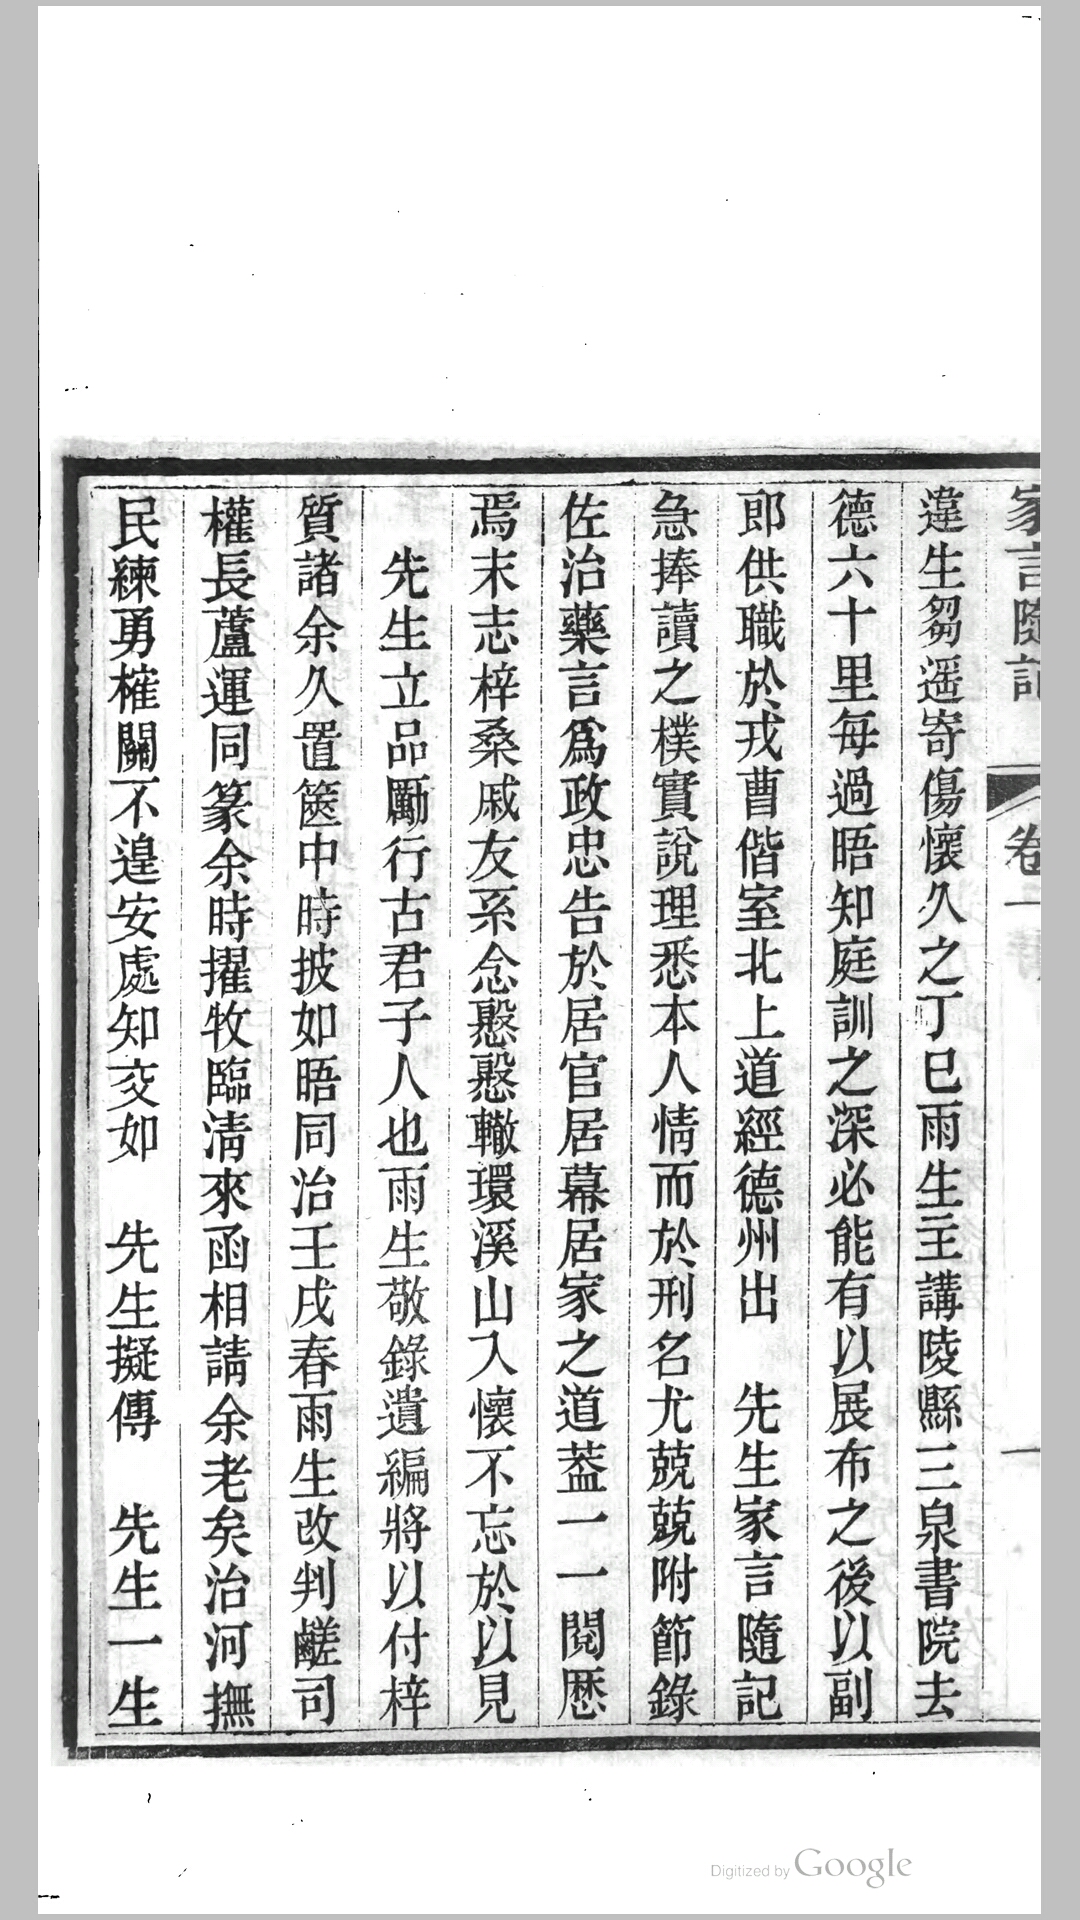 家言隨記 卷一 一
違生芻遥寄傷懷久之丁巳雨生主講陵縣三泉書院去
德六十里每過晤知庭訓之深必能有以展布之後以副
郎供職於戎曹偕室北上道經德州出 先生家言隨記
急捧讀之樸實說理悉本人情而於刑名尤兢兢附節錄
佐治藥言爲政忠告於居官居幕居家之道葢一一閱歷
焉末志梓桑戚友系念懇懇轍環溪山入懷不忘於以見
先生立品勵行古君子人也雨生敬錄遺編將以付梓
質諸余久置篋中時披如晤同治壬戌春雨生改判鹺司
權長蘆運同篆余時擢牧臨清來函相請余老矣治河撫
民練勇榷關不遑安處知交如 先生擬傳 先生一生
Digitized by Google